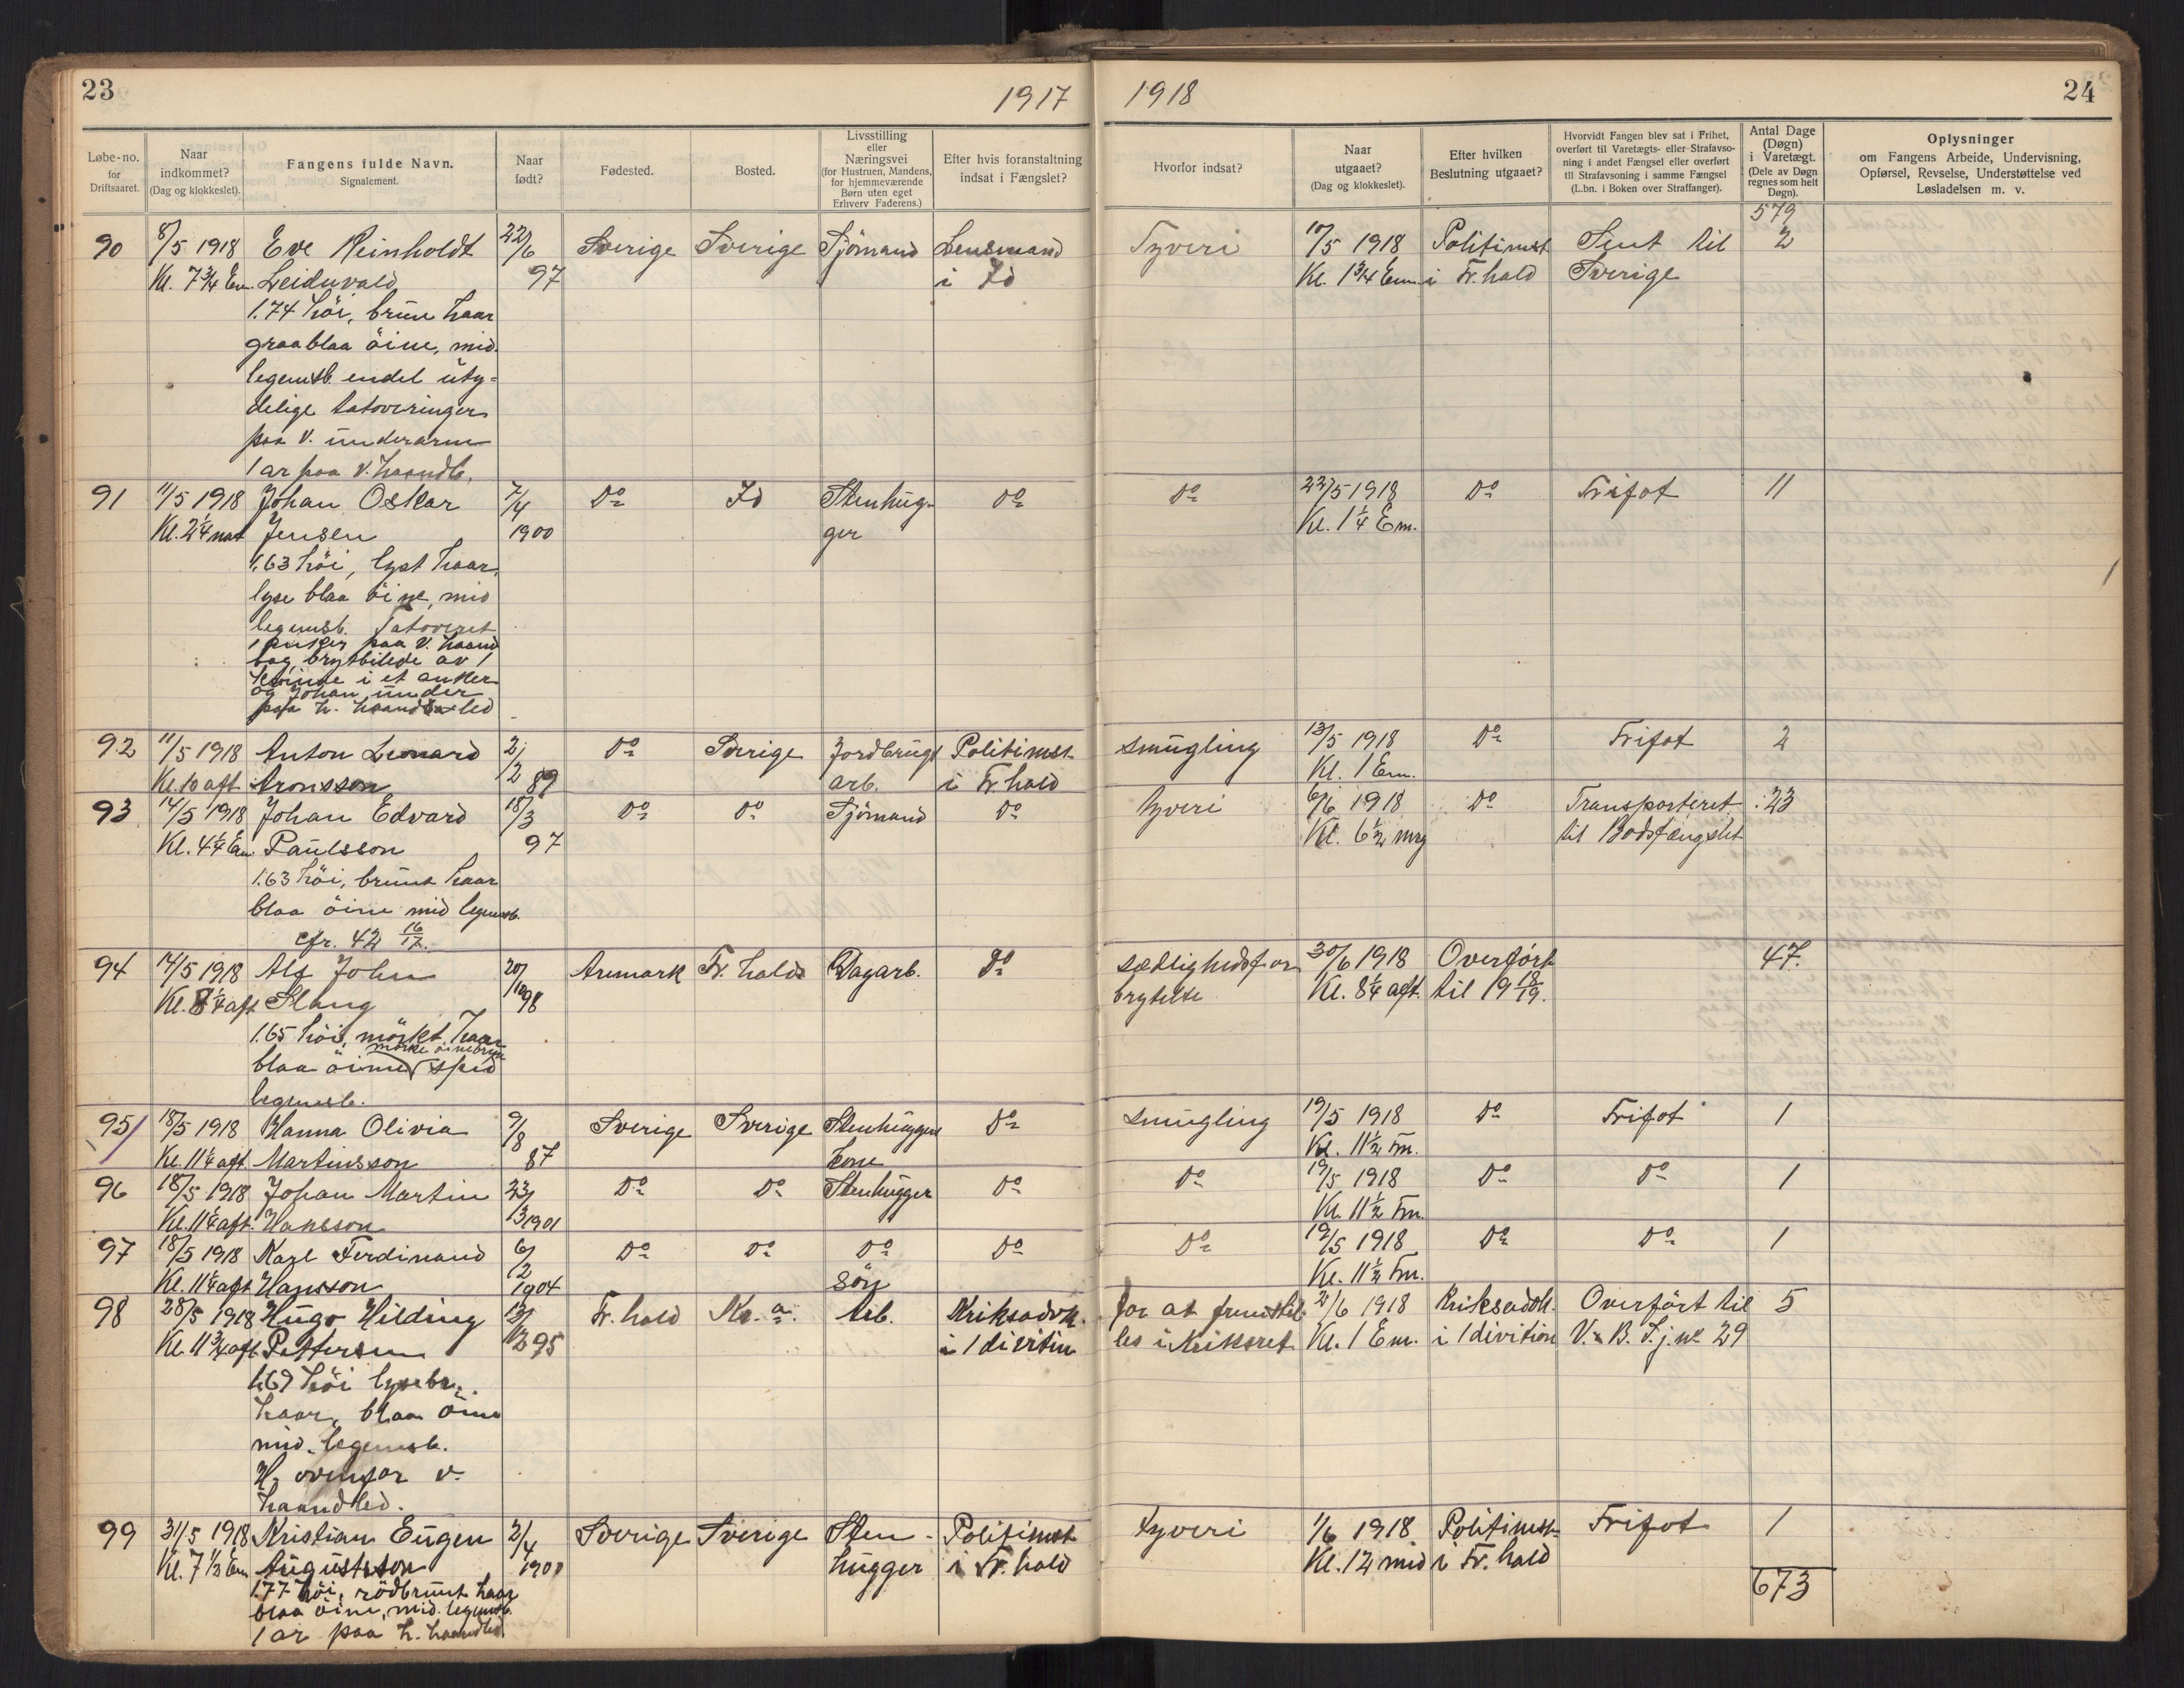 23
1917
1918
24
Løbe-no. for Driftsaaret.
Naar indkommet? (Dag og klokkeslet).
Fangens fulde Navn. Signalement.
Naar født?
Fødested.
Bosted.
Livsstilling eller Næringsvei (for Hustruen, Mandens, for hjemmeværende Børn uten eget Erhverv Faderens.)
Efter hvis foranstaltning indsat i Fængslet?
Hvorfor indsat?
Naar utgaaet? (Dag og klokkeslet).
Efter hvilken Beslutning utgaaet?
Hvorvidt Fangen blev sat i Frihet, overført til Varetægts- eller Strafavsoning i andet Fængsel eller overført til Strafavsoning i samme Fængsel (L.bn. i Boken over Straffanger).
Antal Dage (Døgn) i Varetægt. (Dele av Døgn regnes som helt Døgn).
Oplysninger om Fangens Arbeide, Undervisning, Opførsel, Revselse, Understøttelse ved Løsladelsen m. v.
579
90 8/5 1918 Eve Reinholdt 22/6 Sverige Sverige Sjömand Lensmand Tyveri 10/5 1918 Politimst. Sent til 2
Kl. 7 3/4 Em. Leiduvald 97 i Id Kl. 1 3/4 Em. i Fr. hald Sverige
1.74 höi, brune haar
graablaa öine, mid.
legemsb. endel uty-
delige tatoveringer
paa v. underarm
1 ar paa v. haandb.
91 11/5 1918 Johan Oskar 7/4 Do Id Stenhug- Do Do 22/5 1918 Do Frifot 11
Kl. 2 1/4 nat Jensen 1900 ger Kl. 1 1/4 Em.
1.63 höi, lyst haar,
lyse blaa öine, mid
legemsb. Tatoveret
1 anker paa v. haand
bag, brystbilede av 1
kvinde i et anker
og Johan under
paa h. haandled
92 11/5 1918 Anton Leonard 2/12 Do Sverige Jordbrugs Politimst. smugling 13/5 1918 Do Frifot 2
Kl. 10 aft. Aronsson 89 arb. i Fr. hald Kl. 1 Em.
93 14/5 1918 Johan Edvard 18/3 Do Do Sjömand Do Tyveri 6/6 1918 Do Transporteret 23
Kl. 4 1/4 Em Paulsson 97 Kl. 6 1/2 mrg til Bodsfængslet
1.63 höi, brunt haar
blaa öine mid legemsb.
cfr. 42 16/17.
94 14/5 1918 Alf John 20/10 Aremark Fr. hald Dagarb. Do sædlighedsfor 30/6 1918 Overfört 47.
Kl. 8 1/4 aft Stang 98 brytelse Kl. 8 1/4 aft. til 19 18/19.
1.65 höi, mörkt haar
mörke öinebryn
blaa öine, sped
legemsb.
95 18/5 1918 Hanna Olivia 9/8 Sverige Sverige Stenhuggers Do smugling 19/5 1918 Do Frifot 1
Kl. 11 1/4 aft. Martinsson 87 kone Kl. 11 1/2 Fm.
96 18/5 1918 Johan Martin 23/3 Do Do Stenhugger Do Do 19/5 1918 Do Do 1
Kl. 11 1/4 aft. Hansson 1901 Kl. 11 1/2 Fm.
97 18/5 1918 Karl Ferdinand 6/2 Do Do Do Do Do 19/5 1918 Do Do 1
Kl. 11 1/4 aft Hansson 1904 sön Kl. 11 1/2 Fm.
98 28/5 1918 Hugo Hilding 13/12 Fr. hald Kr. a. Arb. Kriksadvk. for at fremstil 2/6 1918 Kriksadvk. Overfört til 5
Kl. 11 3/4 aft. Pettersen 95 i 1 divition les i Kriksret Kl. 1 Em. i 1 divition V. B. F. j. no 29
1.69 höi lysebr.
haar, blaa öine
mid. legemsb.
H. ovenfor v.
haandled.
99 31/5 1918 Kristian Eugen 2/4 Sverige Sverige Sten- Politimst Tyveri 1/6 1918 Politimst. Frifot 1
Kl. 7 1/2 Em Augustsson 1900 hugger i Fr. hald Kl. 12 mid i Fr. hald
1.77 höi, rödbrunt haar
blaa öine, mid. legemsb.
1 ar paa h. haandled.
673